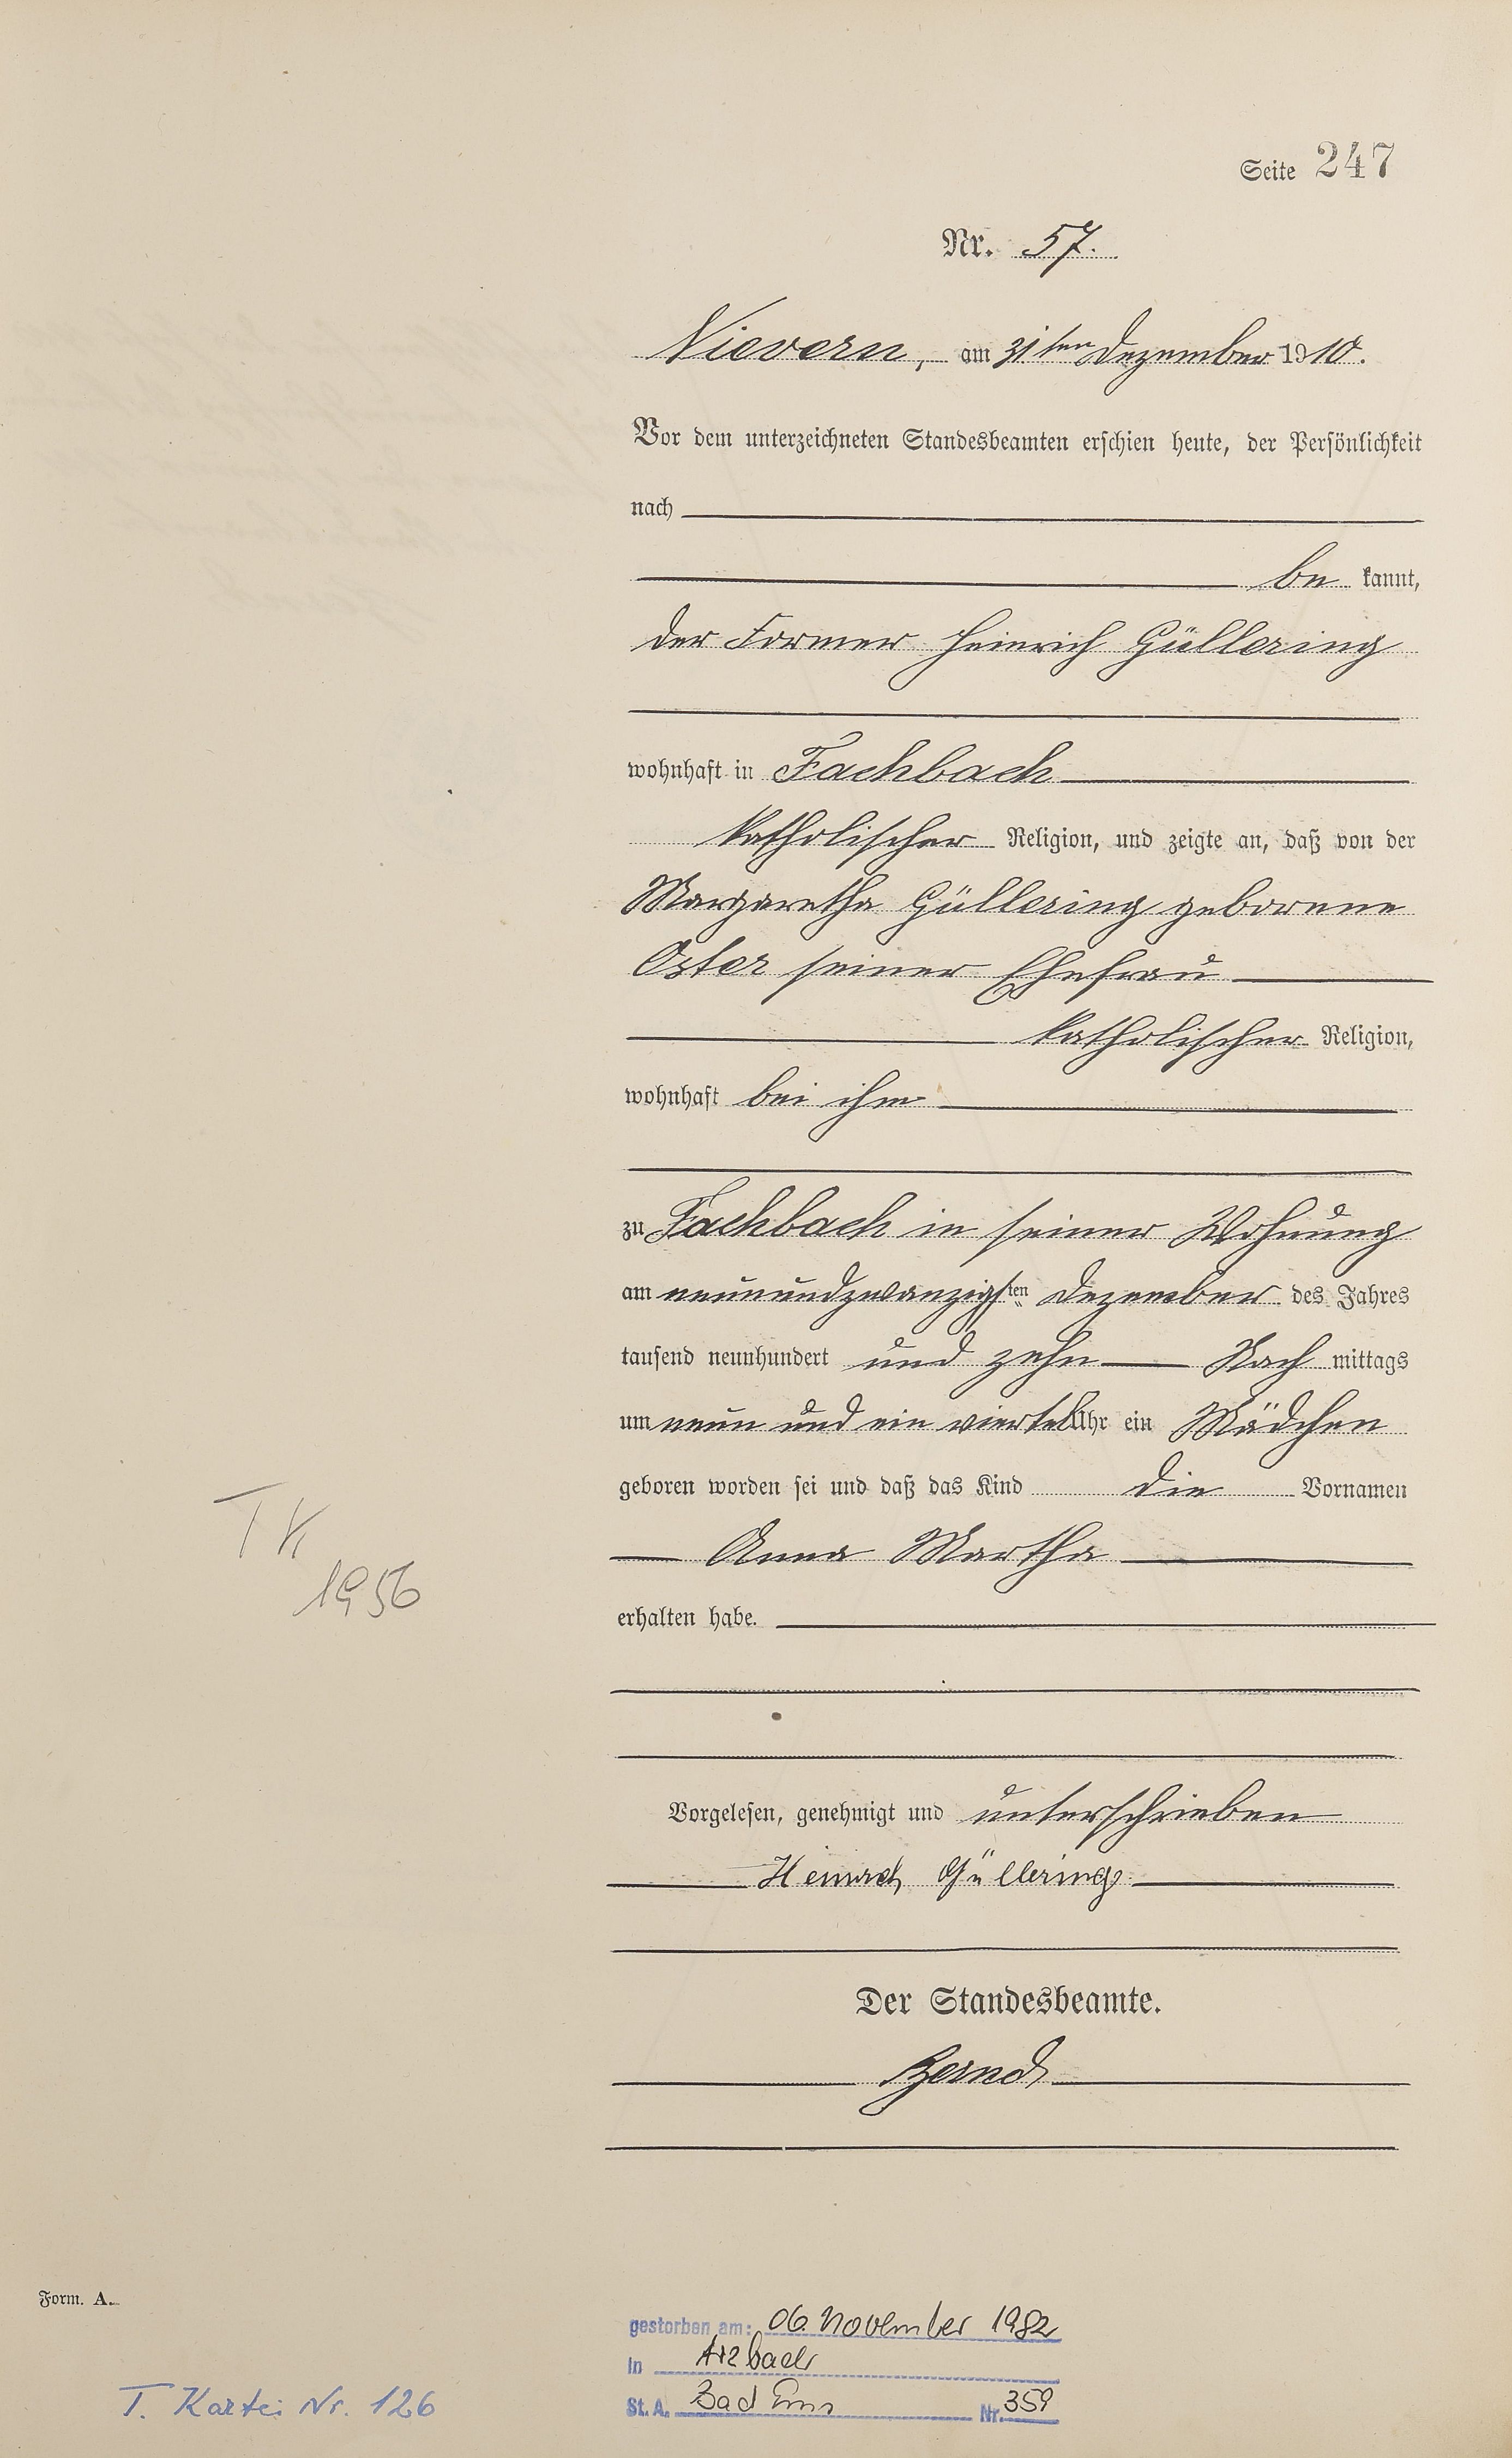 Seite 247
Nr. 57.
Nievern, am 31ten Dezember 1910.
Vor dem unterzeichneten Standesbeamten erschien heute, der Persönlichkeit
nach
be kannt,
der Former Heinrich Güllering
wohnhaft in Fachbach
katholischer Religion, und zeigte an, daß von der
Margaretha Güllering geborene
Oster seiner Ehefrau
katholischer Religion,
wohnhaft bei ihm
zu Fachbach in seiner Wohnung
am neunundzwanzigsten Dezember des Jahres
tausend neunhundert und zehn Nach mittags
um neun und ein viertel Uhr ein Mädchen
geboren worden sei und daß das Kind die Vornamen
Anna Martha
TK
1956
erhalten habe.
Vorgelesen, genehmigt und unterschrieben
Heinrich Güllering
Der Standesbeamte.
Form. A.
gestorben am: 06. November 1982
in Arzbach
St. A. Bad Ems Nr. 359
T. Kartei Nr. 126